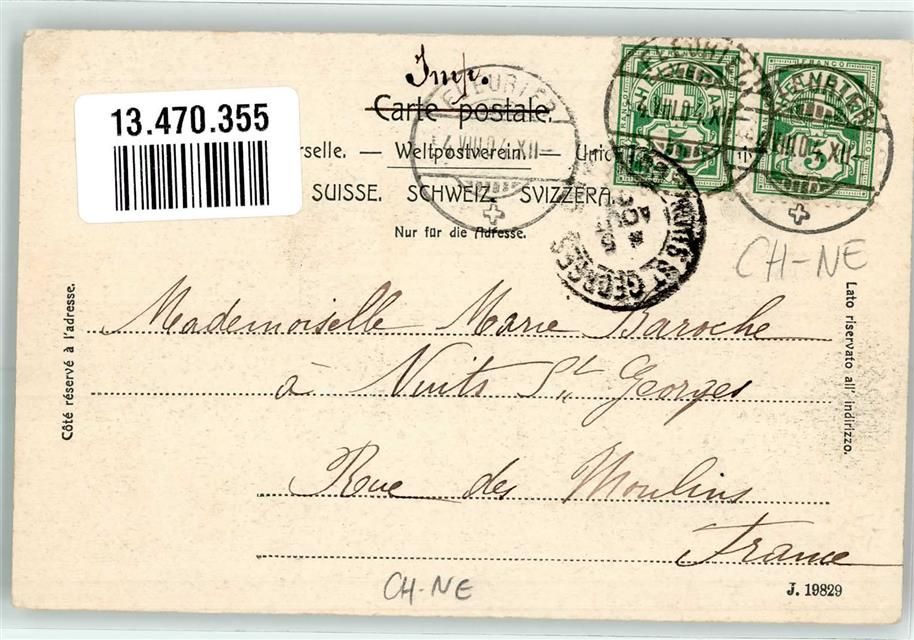 Imp.
Carte postale.
13.470.355
rselle. — Weltpostverein. — Unio
SUISSE. SCHWEIZ. SVIZZERA.
Nur für die Adresse.
FLEURIER
4.VIII.04.XII
FRANCO
5
FRANCO
5
NUITS-ST-GEORGES
CH-NE
Côté réservé à l'adresse.
Lato riservato all' indirizzo.
Mademoiselle Marie Baroche
à Nuits St. Georges
Rue des Moulins
France
CH-NE
J. 19829